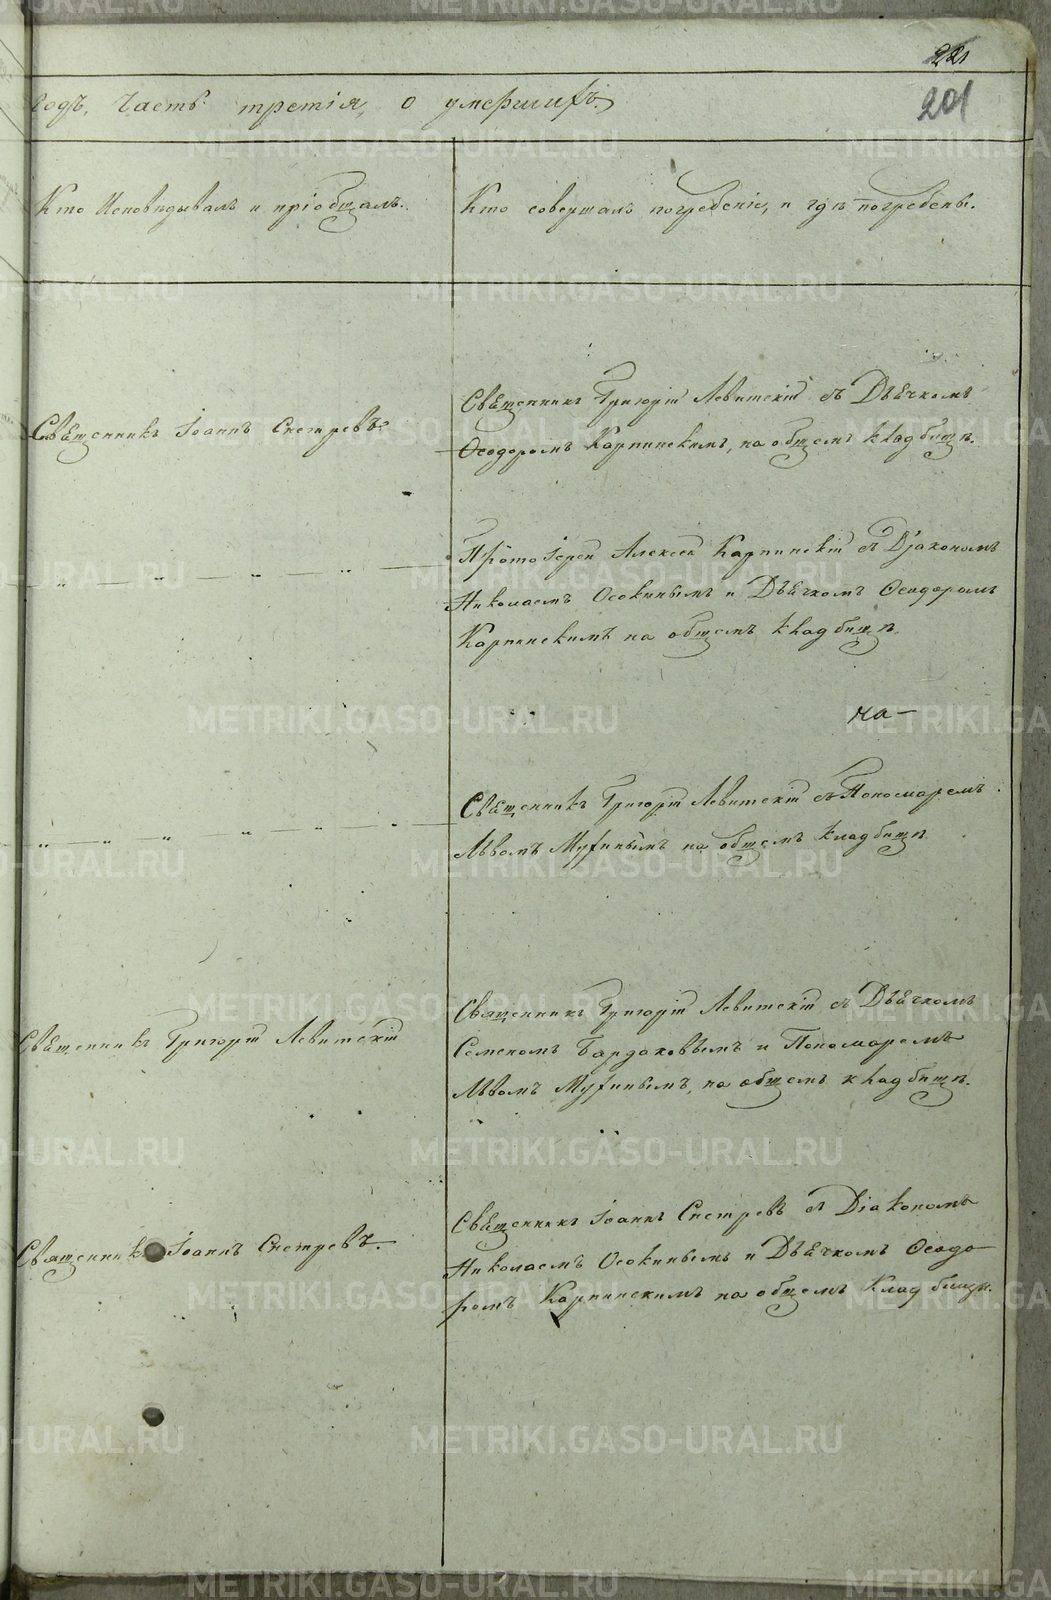 221
201
годъ, часть третія, о умершихъ.
Кто Исповѣдывалъ и пріобщалъ.
Кто совершалъ погребеніе, и гдѣ погребены.
Священникъ Григорій Левитскій съ Дьячкомъ
Священникъ Іоаннъ Снетревъ.
Ѳеодоромъ Карпинскимъ, на общемъ кладбищѣ.
Протоіерей Алексей Карпинскій съ Діакономъ
Николаемъ Осокинымъ и Дьячкомъ Ѳеодоромъ
Карпинскимъ на общемъ кладбищѣ.
на-
Священникъ Григорій Левитскій съ Пономаремъ
Львомъ Мухинымъ на общемъ кладбищѣ
Священникъ Григорій Левитскій съ Дьячкомъ
Священникъ Григорій Левитскій
Семеномъ Бардаковымъ и Пономаремъ
Львомъ Мухинымъ, на общемъ кладбищѣ.
Священникъ Іоаннъ Снетревъ съ Діакономъ
Священникъ Іоаннъ Снетревъ.
Николаемъ Осокинымъ и Дьячкомъ Ѳеодо-
ромъ Карпинскимъ на общемъ кладбищѣ.
METRIKI.GASO-URAL.RU